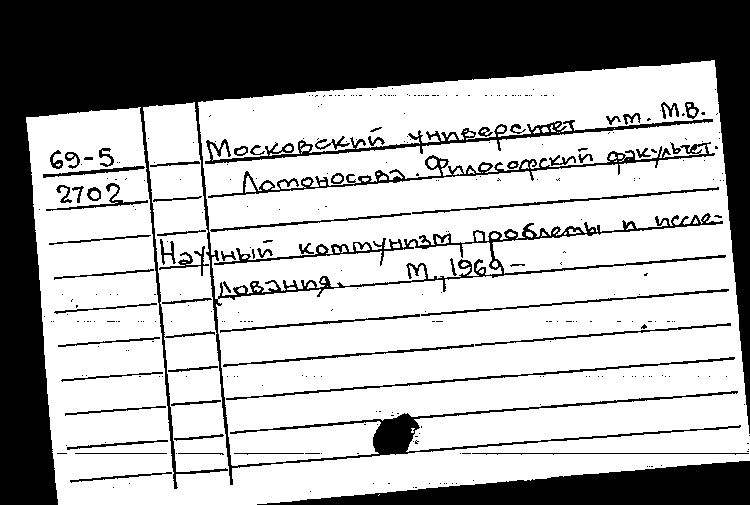 69-5
2702
Московский университет им. М.В.
Ломоносова. Философский факультет.
Научный коммунизм, проблемы и иссле-
дования. М., 1969-